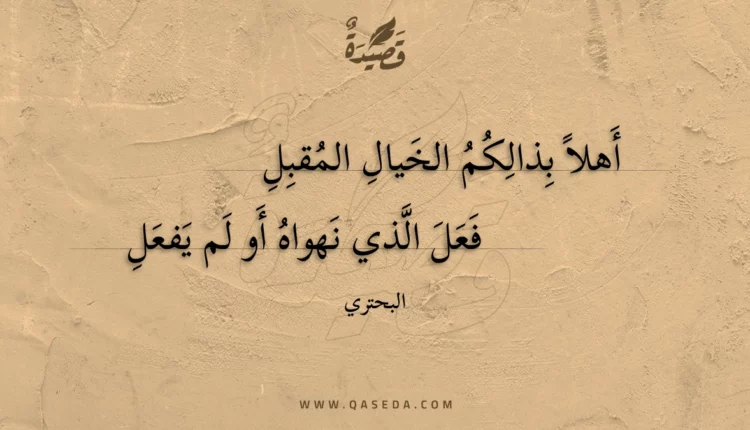 قَصِيدَةٌ
أَهلاً بِذالِكُمُ الخَيالِ المُقبِلِ
فَعَلَ الَّذي نَهواهُ أَو لَم يَفعَلِ
البحتري
WWW.QASEDA.COM